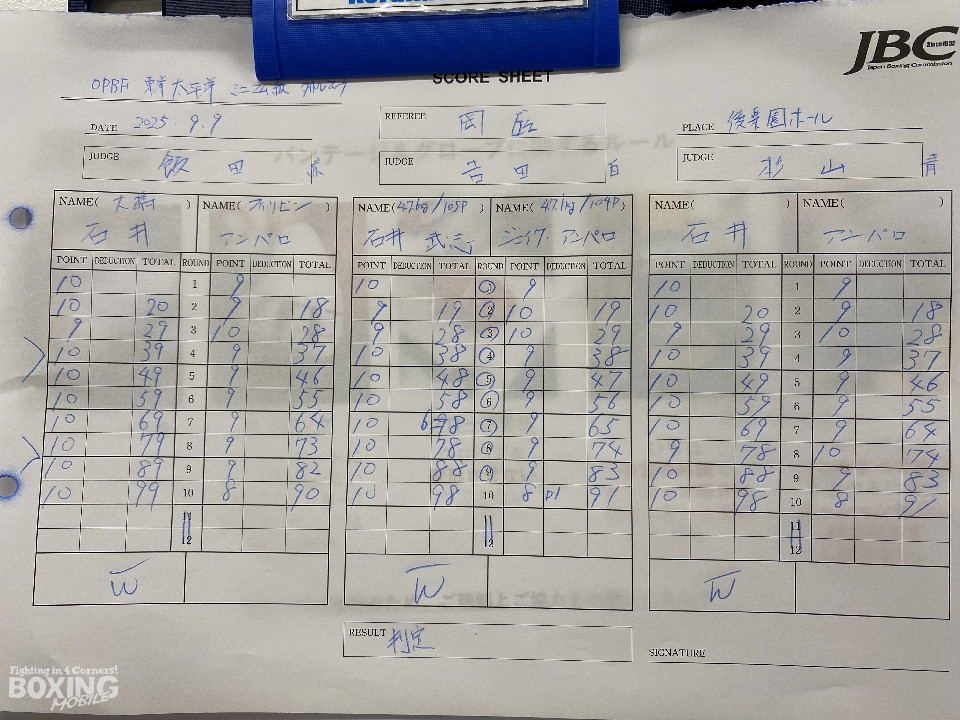 JBC Since1952
Japan Boxing Commission
SCORE SHEET
OPBF 東洋太平洋 ミニマム級
DATE 2025.9.9
REFEREE 岡
PLACE 後楽園ホール
JUDGE 飯田 赤
JUDGE 吉田 白
JUDGE 杉山 青
NAME( 大橋 ) NAME( フィリピン ) NAME( 47.6kg/105P ) NAME( 47.1kg/104P ) NAME( ) NAME( )
石井 アンパロ 石井 武志 ジェイク アンパロ 石井 アンパロ
POINT DEDUCTION TOTAL ROUND POINT DEDUCTION TOTAL POINT DEDUCTION TOTAL ROUND POINT DEDUCTION TOTAL POINT DEDUCTION TOTAL ROUND POINT DEDUCTION TOTAL
10 1 9 10 1 9 10 1 9
10 20 2 9 18 9 19 2 10 19 10 20 2 9 18
9 29 3 10 28 9 28 3 10 29 9 29 3 10 28
10 39 4 9 37 10 38 4 9 38 10 39 4 9 37
10 49 5 9 46 10 48 5 9 47 10 49 5 9 46
10 59 6 9 55 10 58 6 9 56 10 59 6 9 55
10 69 7 9 64 10 68 7 9 65 10 69 7 9 64
10 79 8 9 73 10 78 8 9 74 9 78 8 10 74
10 89 9 9 82 10 88 9 9 83 10 88 9 9 83
10 99 10 8 90 10 98 10 8 D1 91 10 98 10 8 91
11 11 11
12 12 12
W W W
RESULT 判定
SIGNATURE
Fighting in 4 Corners!
BOXING
MOBILE